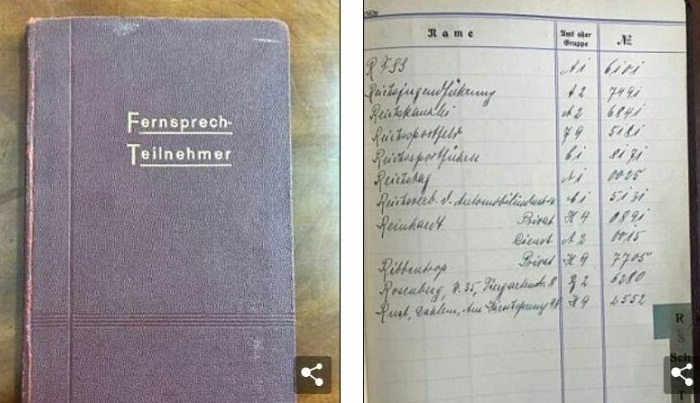 Fernsprech-
Teilnehmer
Name Amt oder Gruppe №
R F SS A1 6101
Reichsjugendführung A2 7491
Reichskanzlei A2 6841
Reichssportfeld J9 5181
Reichssportführer 8171
Reichstag A1 0025
Reichsverb. d. Automobilindustrie 5131
Reinhardt Privat H4 0891
Dienst A2 0015
Ribbentrop Privat H9 7705
Rosenberg, W. 35, Tiergartenstr. 8 B2 6280
Rust, Dahlem, H9 2552
R
S
Sch
T